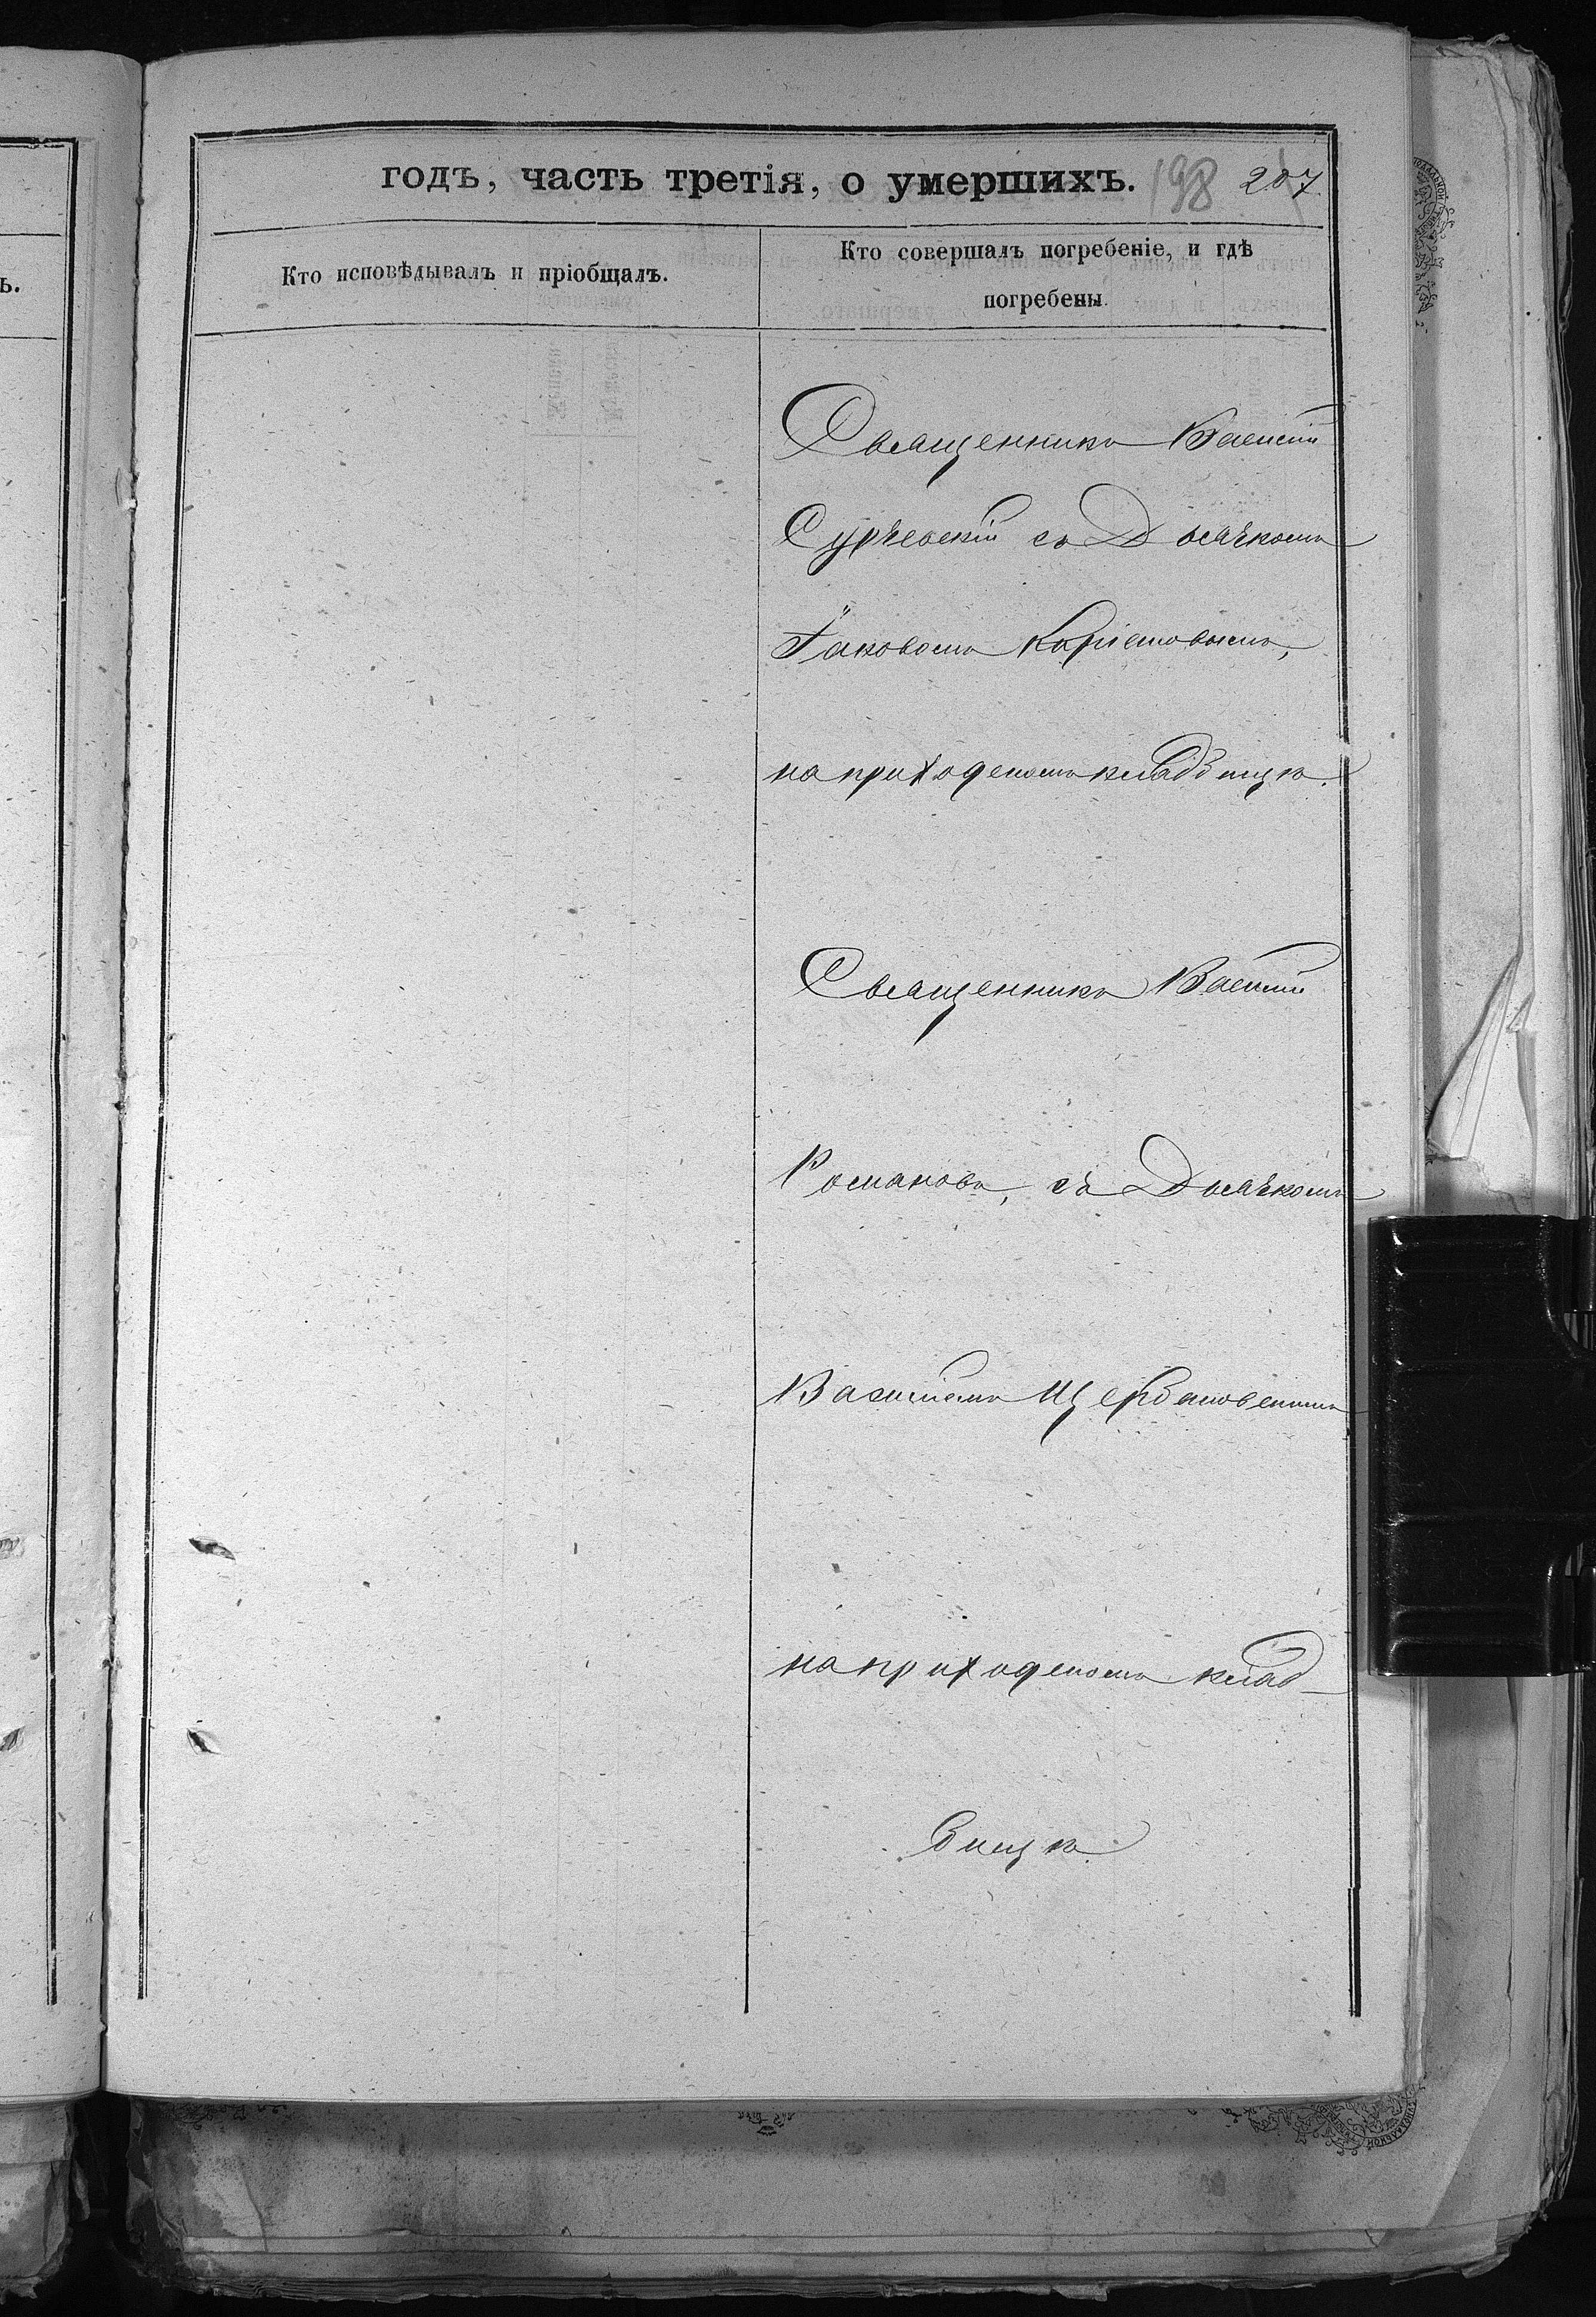 годъ, часть третія, о умершихъ. 198 207
Кто исповѣдывалъ и пріобщалъ.
Кто совершалъ погребеніе, и гдѣ
погребены.
Священникъ Василій
съ Дьячкомъ
Іаковомъ
на приходскомъ кладбищѣ.
Священникъ Василій
Романовъ, съ Дьячкомъ
Василіемъ Щербановскимъ
на приходскомъ клад-
бищѣ.